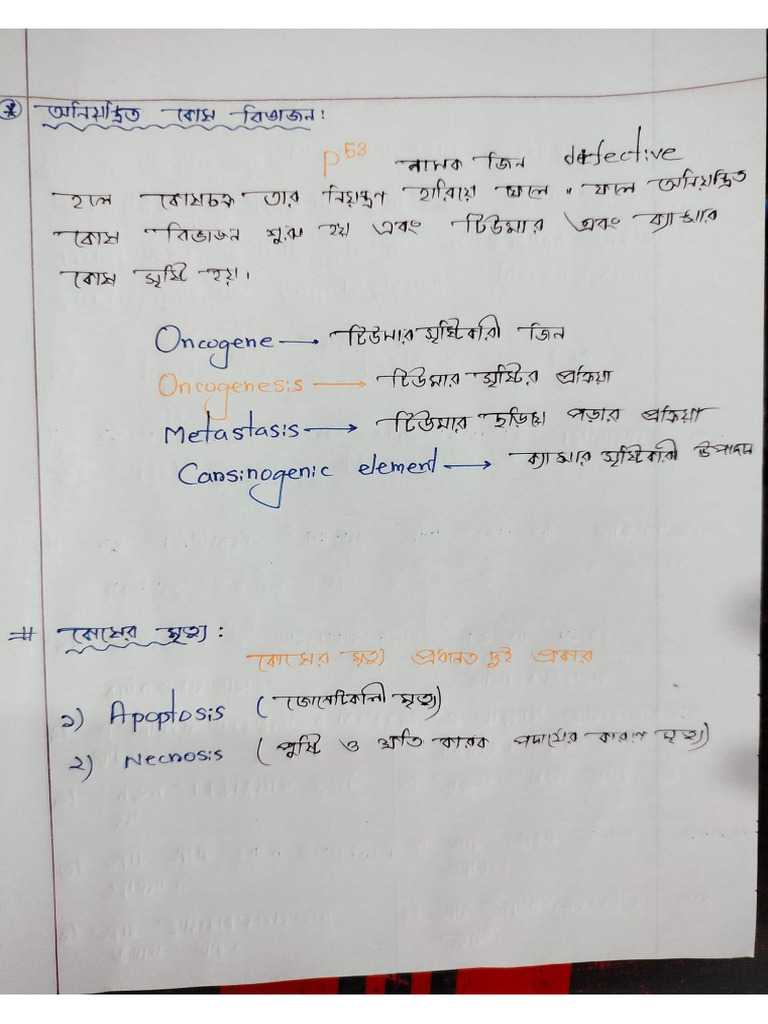 * অনিয়ন্ত্রিত কোষ বিভাজন:
p53 নামক জিন defective
হলে কোষচক্র তার নিয়ন্ত্রণ হারিয়ে ফেলে। ফলে অনিয়ন্ত্রিত
কোষ বিভাজন শুরু হয় এবং টিউমার এবং ক্যান্সার
কোষ সৃষ্টি হয়।
Oncogene → টিউমার সৃষ্টিকারী জিন
Oncogenesis → টিউমার সৃষ্টির প্রক্রিয়া
Metastasis → টিউমার ছড়িয়ে পড়ার প্রক্রিয়া
Cansinogenic element → ক্যান্সার সৃষ্টিকারী উপাদান
# কোষের মৃত্যু:
কোষের মৃত্যু প্রধানত দুই প্রকার
১) Apoptosis (জেনেটিকলি মৃত্যু)
২) Necnosis (পুষ্টি ও ক্ষতি কারক পদার্থের কারণে মৃত্যু)